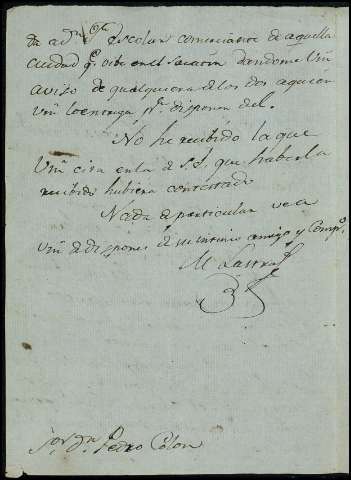 da a Dn escolar comerciante de aquella
ciudad qe vive en el dandome Vm
aviso de qualquiera de los dos a quien
Vm lo entrega pa disponer del.
No he recibido la que
Vm cita en la de que haberla
recibido hubiera contestado
Nada de particular vea
Vm de disponer de su intimo amigo y Compo
M Lastra
Sor Dn Pedro Colon